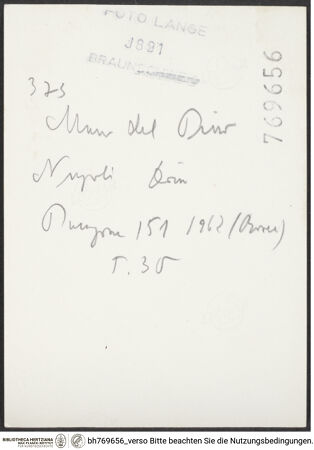 FOTO LANGE
J891
BRAUNSCHWEIG
769656
373
Marco del Pino
Napoli
Paragone 151 1962 (Borea)
T. 35
BIBLIOTHECA HERTZIANA
MAX-PLANCK-INSTITUT
FÜR KUNSTGESCHICHTE
bh769656_verso Bitte beachten Sie die Nutzungsbedingungen.